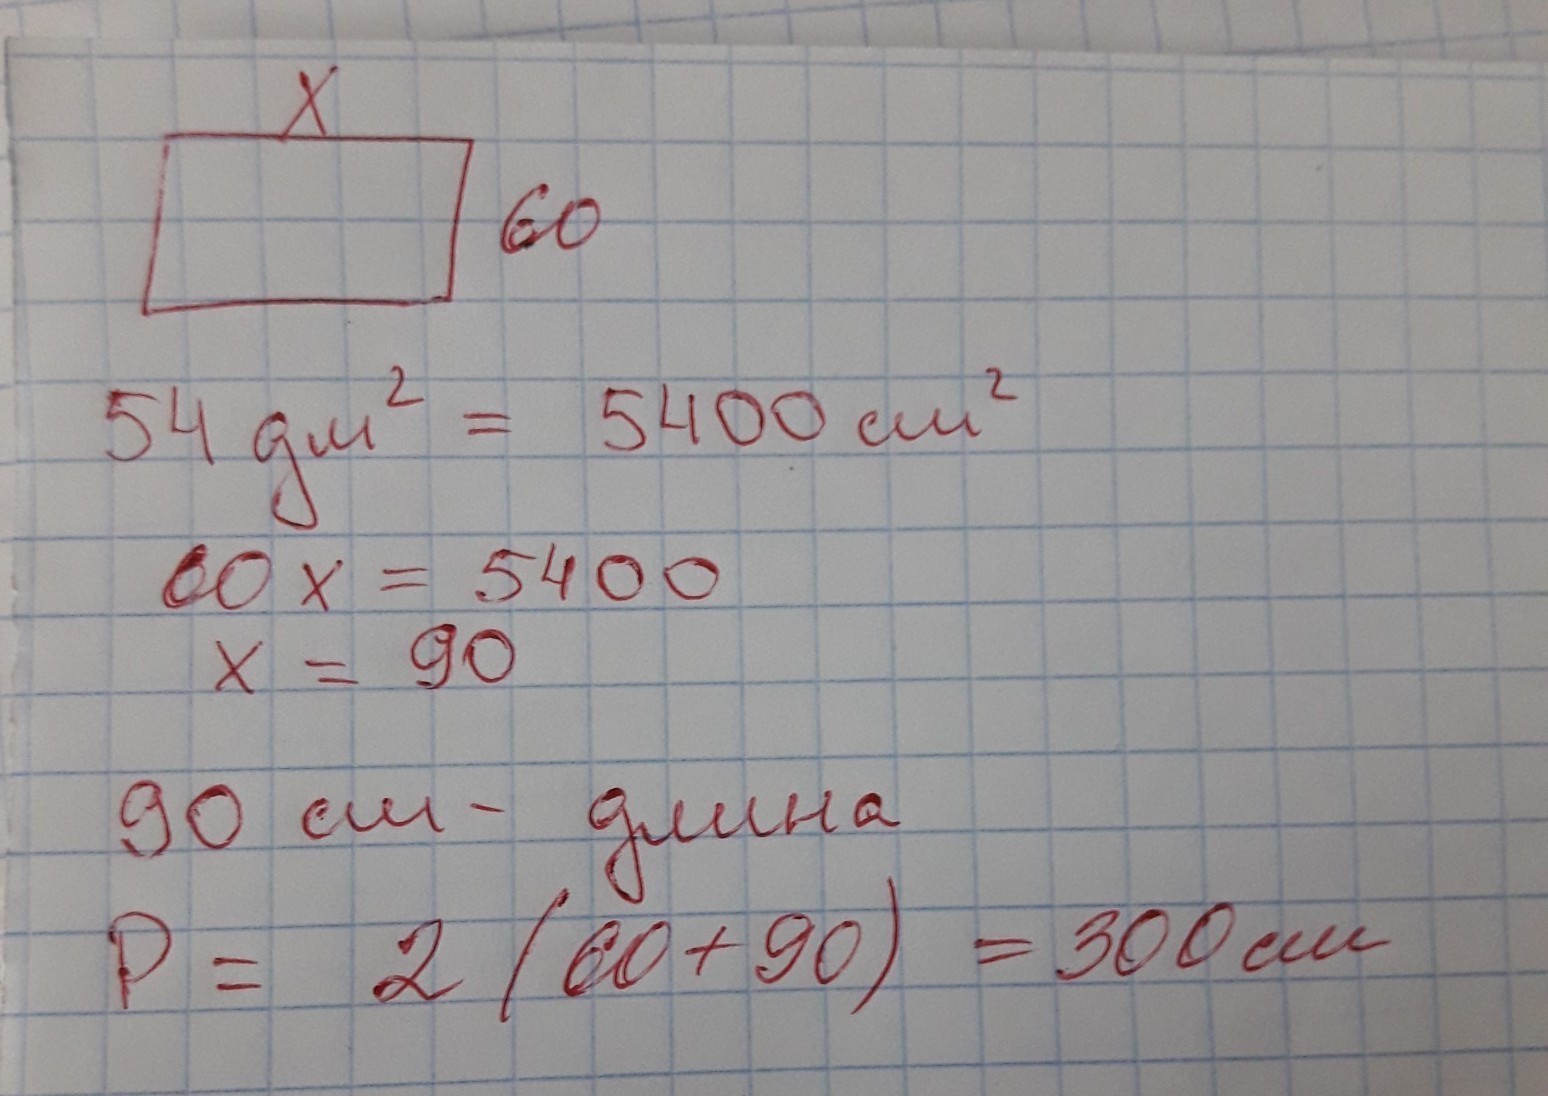 x
60
54 дм² = 5400 см²
60 x = 5400
x = 90
90 см - длина
P = 2 (60 + 90) = 300 см